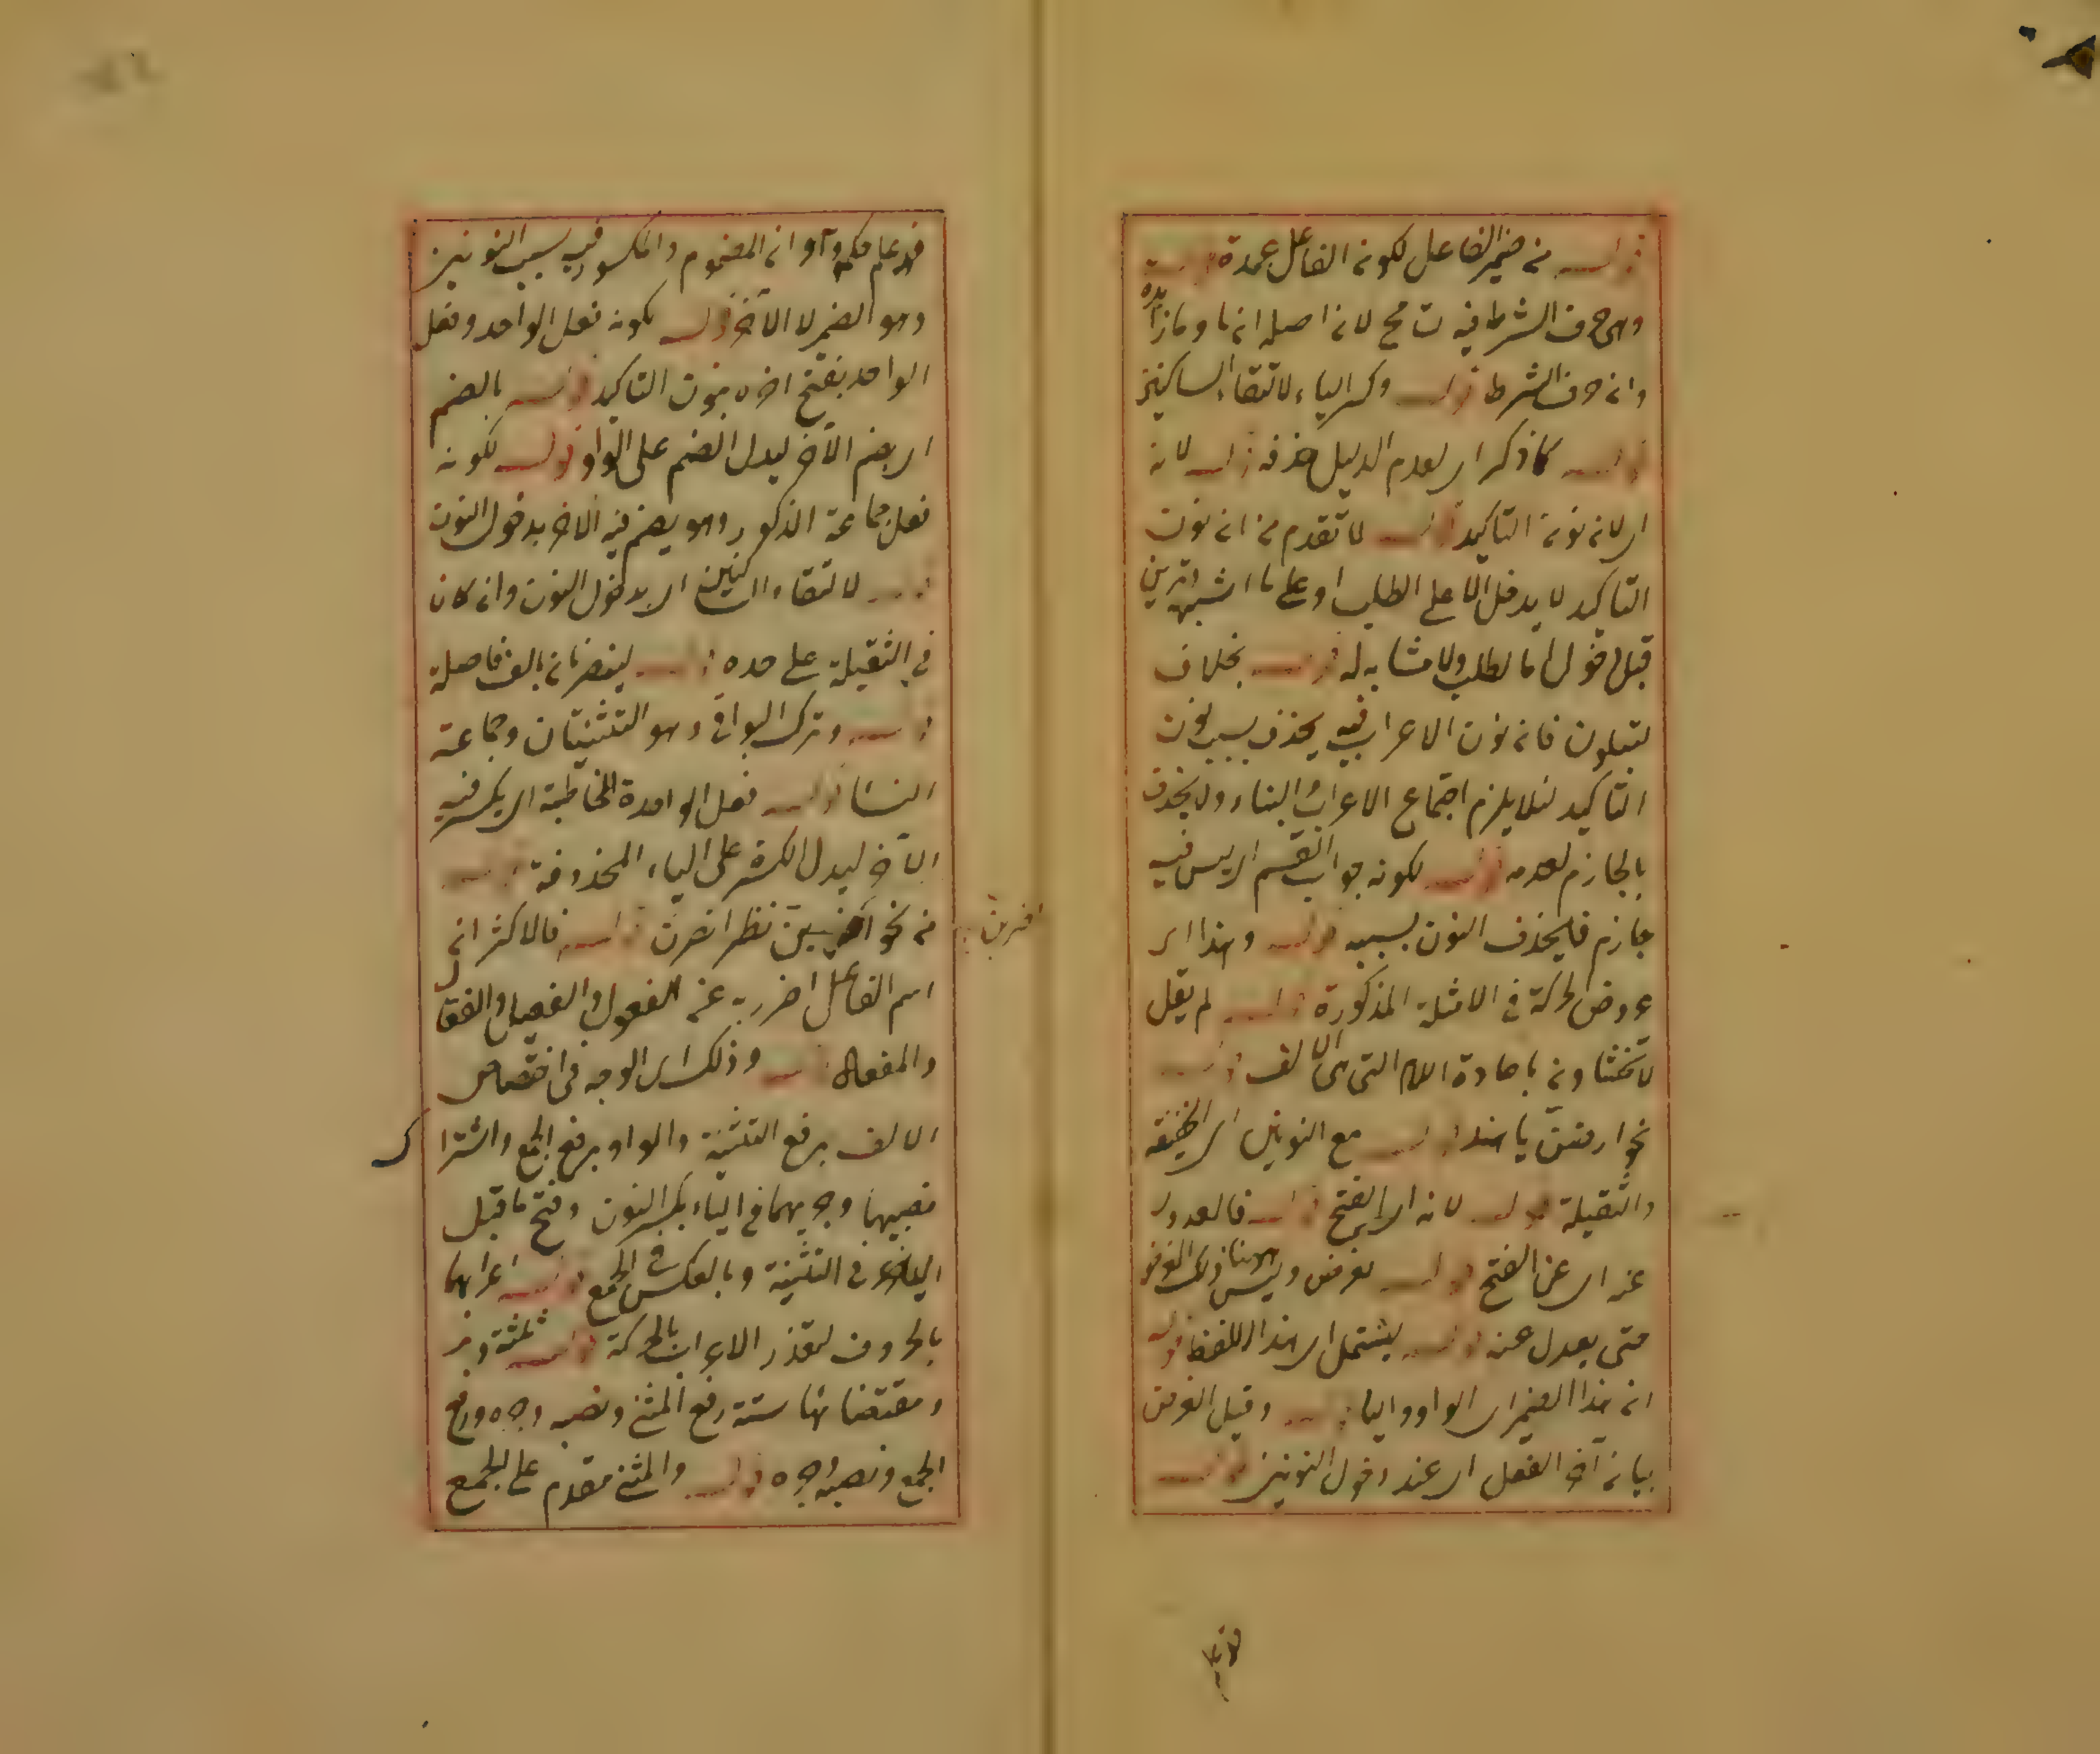 قوله من ضمير الفاعل لكونه الفاعل عمدة قوله
وهى حرف الشرط فيه تسامح لانه اصله ان ما وما زائدة
وان حرف الشرط قوله وكسر الياء لالتقاء الساكنين
قوله كما ذكر اى لعدم الدليل حذفه قوله لانه
اى لان نون التاكيد قوله لما تقدم من ان نون
التاكيد لا يدخل الا على الطلب او على ما اشبهه وترين
قبل دخول اما لا طلب ولا مشابه له قوله بخلاف
لتبلون فان نون الاعراب فيه يحذف بسبب نون
التاكيد لئلا يلزم اجتماع الاعراب والبناء ولا يحذف
بالجازم لعدمه قوله لكونه جواب القسم اى ليس فيه
جازم فليحذف النون بسببه قوله وهذا اى
عروض الحركة فى الامثلة المذكورة قوله لم يقل
لا تخشاون باعادة اللام التى هى الالف قوله
نحو ارضين يا هند قوله مع النونين اى الخفيفة
والثقيلة قوله لانه اى الفتح قوله فالعدول
عنه اى عن الفتح قوله لغرض وليس هنا ذلك الغرض
حتى يعدل عنه قوله ليشتمل اى هذا اللفظ قوله
ان هذا الضمير اى الواو والياء قوله وقيل الغرض
بيان آخر الفعل اى عند دخول النونين قوله
قد علم حكم واو ان المضموم والمكسور فيه بسبب النونين
وهو الضمير لا الآخر قوله لكونه فعل الواحد وفعل
الواحد يفتح اخره بنون التاكيد قوله بالضم
اى بضم الآخر ليدل الضم على الواو قوله لكونه
فعل جماعة الذكور وهو يضم فيه الاخر بدخول النون
قوله لالتقاء الساكنين اى بدخول النون وان كان
فى الثقيلة على حده قوله لينصرنان بالف فاصلة
قوله وترك البواقى وهو التثنيتان وجماعة
النساء قوله فعل الواحدة المخاطبة اى يكسر فيه
الآخر ليدل الكسرة على الياء المحذوفة قوله
من نحو اضربن نظر انصرن قوله فالاكثر ان
اسم الفاعل احترز به عن الفعول والفعيل والفعال
والمفعال قوله وذلك اى الوجه فى اختصاص
الالف برفع التثنية والواو برفع الجمع واشتراك
نصبهما وجرهما فى الياء بكسر النون وفتح ما قبل
الياء فى التثنية وبالعكس فى الجمع قوله اعرابهما
بالحروف لتعذر الاعراب بالحركة قوله ثلثة
ومقتضياتها ستة رفع المثنى ونصبه وجره ورفع
الجمع ونصبه وجره قوله والمثنى مقدم على الجمع
اضربن